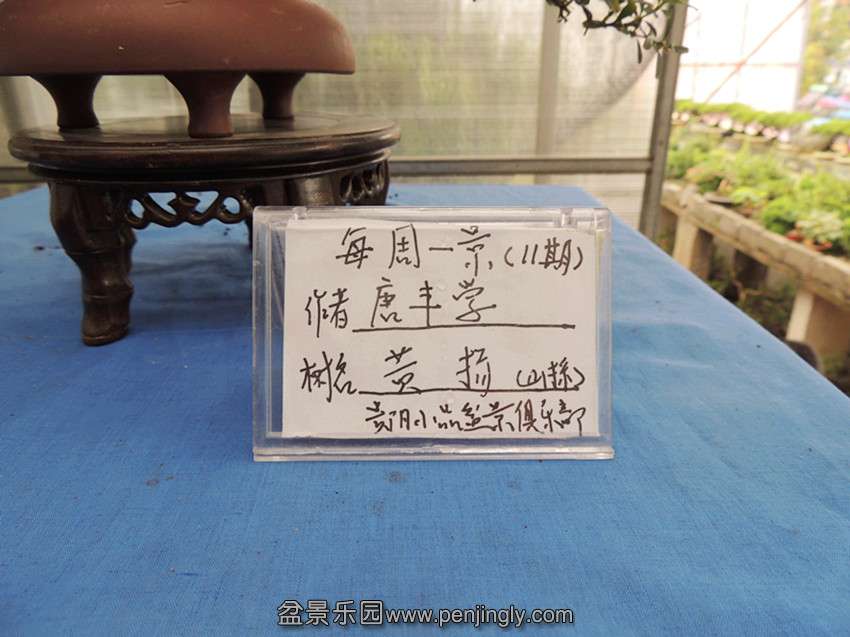 每周一景(11期)
作者 唐丰学
树名 黄扬(山采)
贵阳小品盆景俱乐部
盆景乐园www.penjingly.com